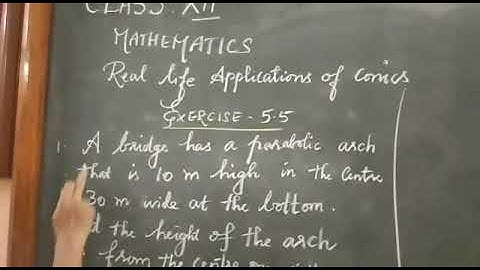 CLASS: XII
MATHEMATICS
Real life Applications of Conics
EXERCISE - 5.5
1. A bridge has a parabolic arch
that is 10 m high in the centre
30 m wide at the bottom.
the height of the arch
from the centre